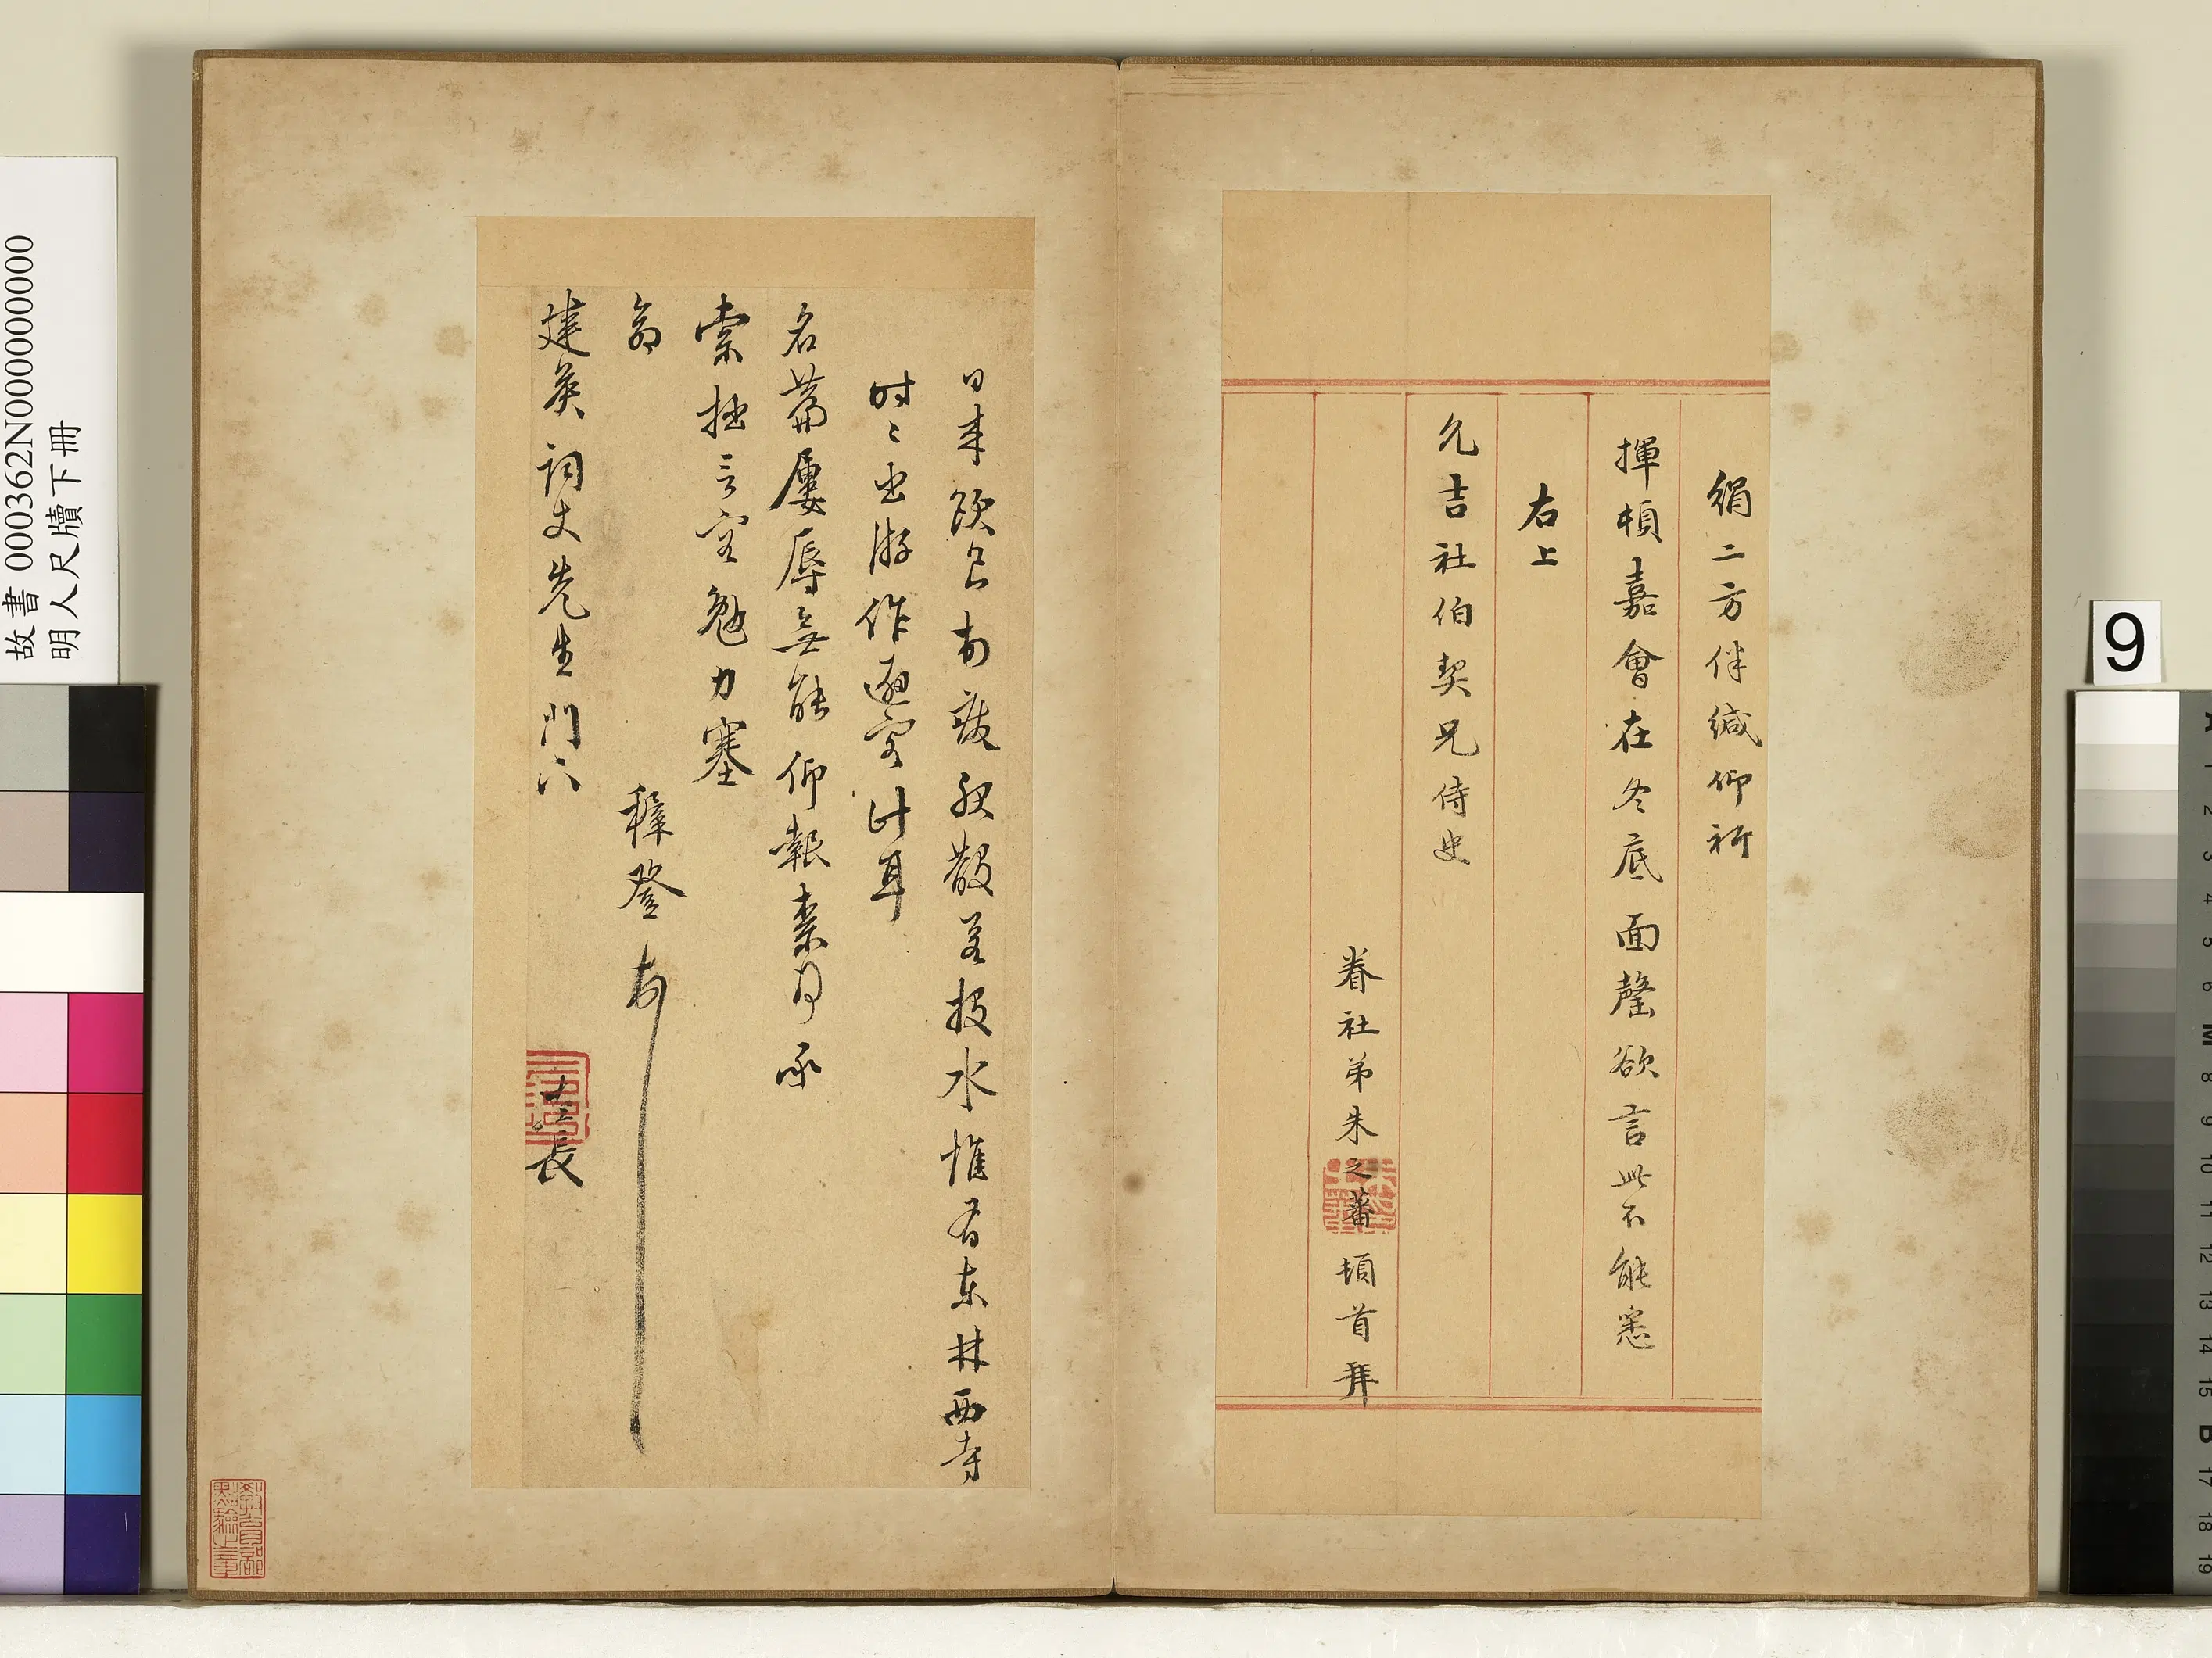 絹二方伴緘仰祈
揮頓嘉會在冬底面罄欲言此不能悉
右上
允吉社伯契兄侍史
眷社弟朱之蕃頓首拜
日來飲食甫散若投水惟有東林西寺
時〻出游作避客計耳
名篇屢辱無能仰報素月承
索拙言容勉力塞
命
穉登
建英詞丈先生門下
左長
故書 000362N000000000
明人尺牘下冊
9